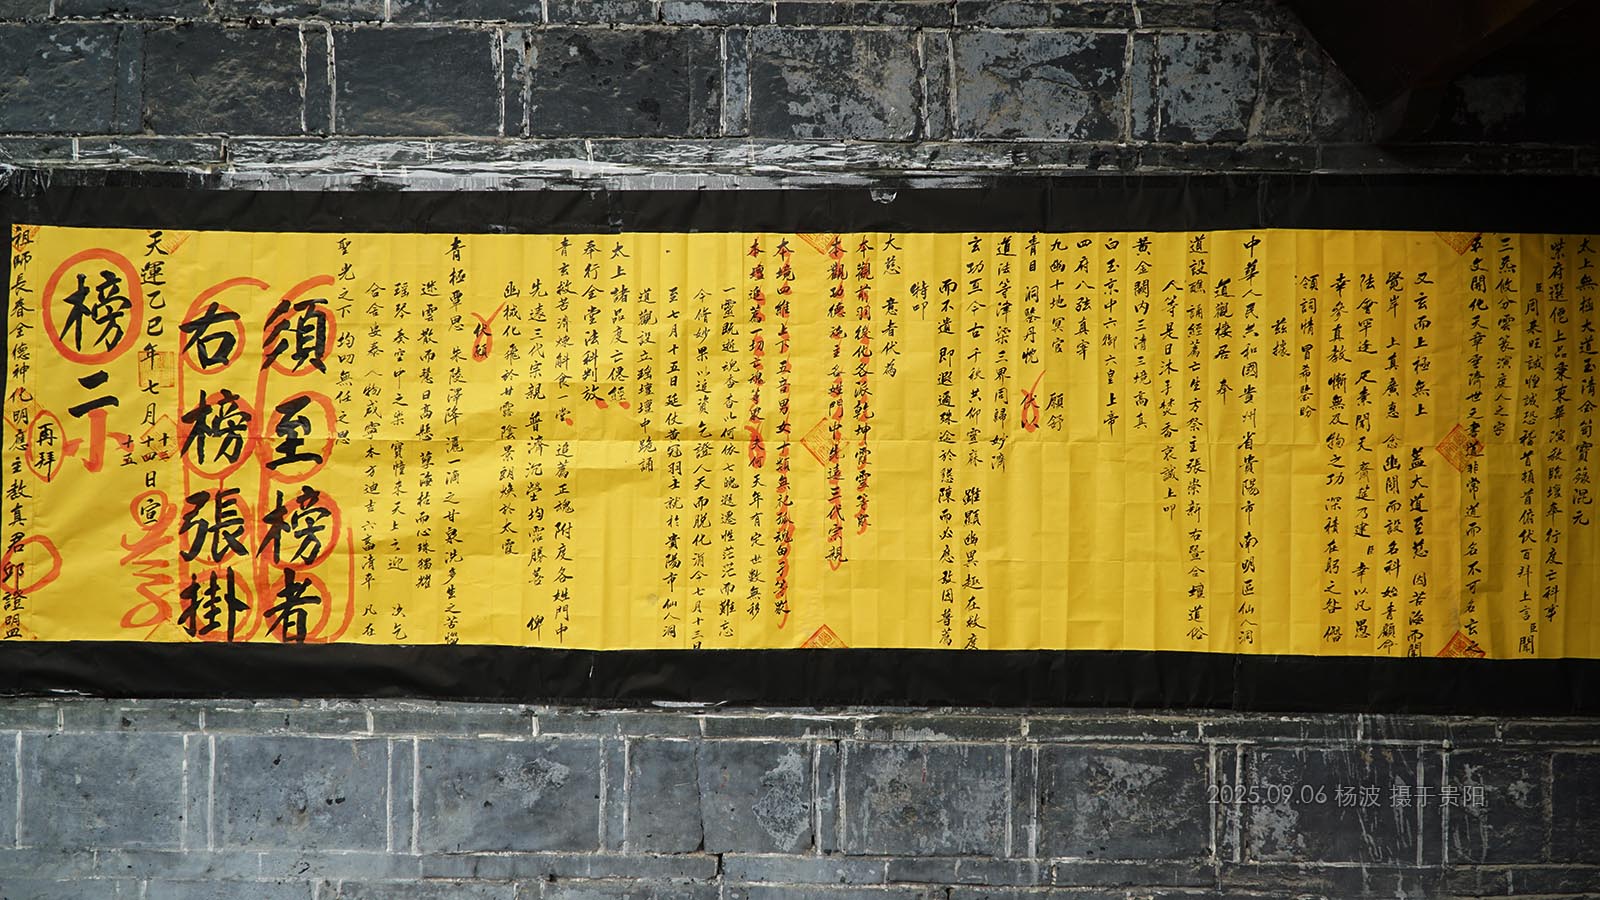 太上無極大道玉清金笥寶籙混元
紫府選仙上品秉東華演教臨壇奉行度亡科事
臣周來旺誠惶誠恐稽首頓首俯伏百拜上言臣聞
三炁攸分雲篆演度人之宗
文開化天章垂濟世之書道非常道而名不可名玄之
又玄而上極無上 蓋大道至慈 因苦海而闡
覺岸 上真廣惠 念幽關而設名科 始青顧命
法會罕逢 尺素聞天 齋筵乃建 臣 幸以凡愚
幸參真教 慚無及物之功 深積在躬之咎 僭
領詞情 冒幕悲盼
茲據
中華人民共和國貴州省貴陽市南明區仙人洞
道觀棲居 奉
道設醮誦經薦亡生方祭主張崇新右暨合壇道俗
人等是日沐手焚香哀誠上叩
黃金闕內三清三境高真
白玉京中六御六皇上帝
四府八紘真宰
九幽十地冥官 願舒
青目 洞鑒丹忱
道法等津梁三界同歸妙濟
玄功亙今古千秋共仰宣麻 雖顯幽異趣在救度
而不遺 即遐邇殊途於懇陳而必應 茲因普薦
特叩
大慈 意者代為
本觀前羽後化各派乾坤靈爽等眾
本觀功德施主各姓門中先遠三代宗親
本境四維上下五音男女十類無祀孤魂由子等眾
本壇追薦一切亡魂等
天年有定世數無移
一靈既逝魂杳杳以何依七魄遐邇性茫茫而難忘
今修妙果以追資 乞證人天而脫化涓今七月十三日
至七月十五日延仗黃冠羽士就於貴陽市仙人洞
道觀設立瑤壇壇中跪誦
太上諸品度亡僊經
奉行全堂法科判放
青玄救苦濟煉斛食一堂 追薦正魂 附度各姓門中
先遠三代宗親 普濟沉塋均霑勝善 俾
幽械化飛於甘露陰景朗煥於太霞
伏願
青極覃恩 朱陵滓降 灑一滴之甘泉洗多生之苦惱
迷雲散而慧日高懸 業海枯而心珠獨耀
瑤琴奏空中之樂 寶幢來天上之迎 次乞
合會興泰 人物咸寧 本方迪吉 六畜清平 凡在
聖光之下 均叨無任之恩
須至榜者
右榜張掛
天運乙巳年七月十三 十四 十五 日宣
榜
再拜
祖師長春全德神化明應主教真君邱證盟
2025.09.06 杨波 摄于贵阳